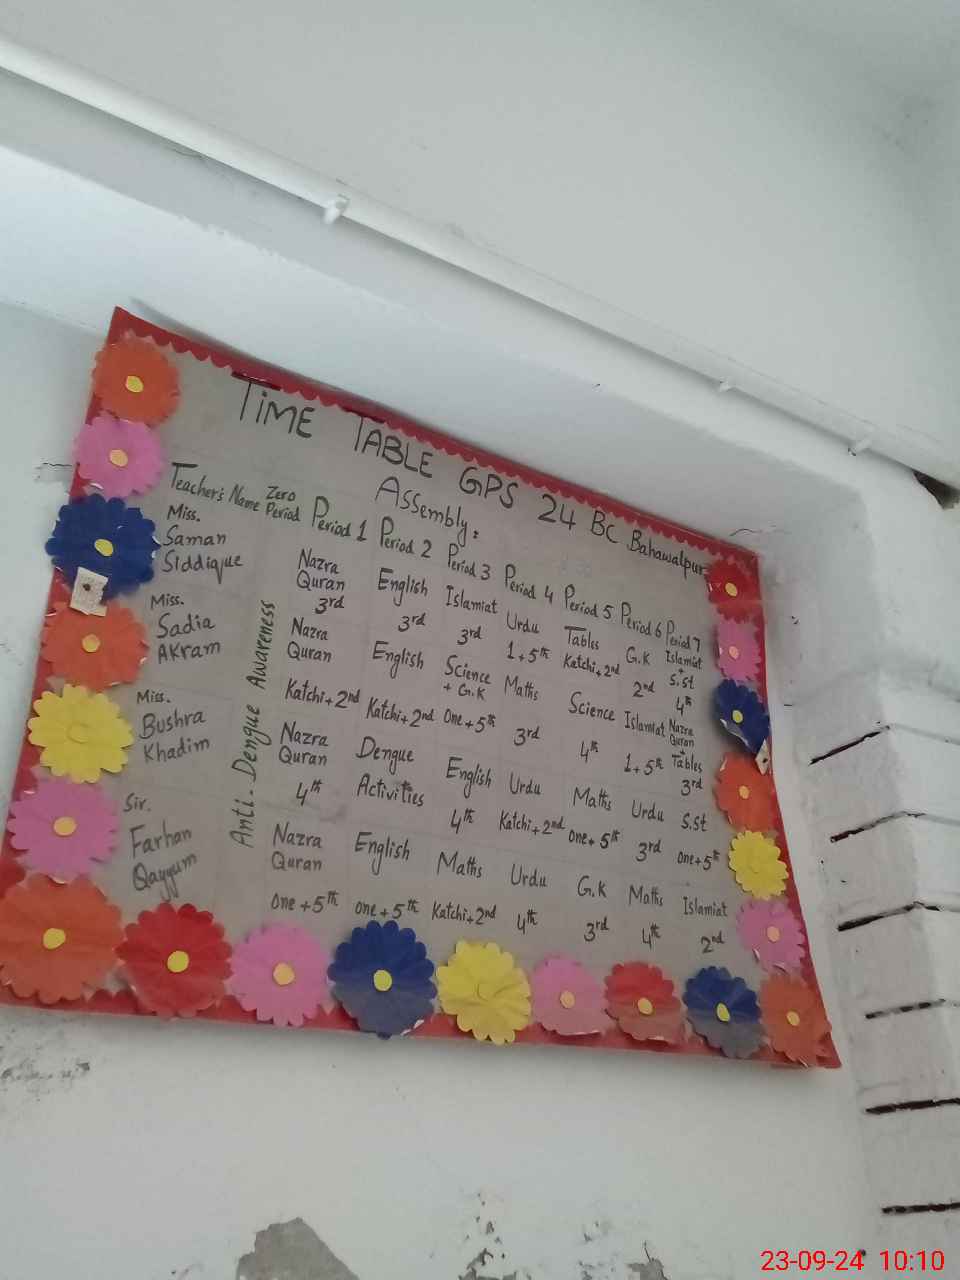 TIME TABLE GPS 24 BC Bahawalpur
Assembly:
Teacher's Name Zero Period Period 1 Period 2 Period 3 Period 4 Period 5 Period 6 Period 7
Anti-Dengue Awareness
Miss. Saman Siddique
Nazra Quran 3rd
English 3rd
Islamiat 3rd
Urdu 1+5th
Tables Katchi+2nd
G.K 2nd
Islamiat + S.st 4th
Miss. Sadia Akram
Nazra Quran Katchi+2nd
English Katchi+2nd
Science + G.K One+5th
Maths 3rd
Science 4th
Islamiat 1+5th
Nazra Quran + Tables 3rd
Miss. Bushra Khadim
Nazra Quran 4th
Dengue Activities
English 4th
Urdu Katchi+2nd
Maths One+5th
Urdu 3rd
S.st One+5th
Sir. Farhan Qayyum
Nazra Quran One+5th
English One+5th
Maths Katchi+2nd
Urdu 4th
G.K 3rd
Maths 4th
Islamiat 2nd
23-09-24 10:10